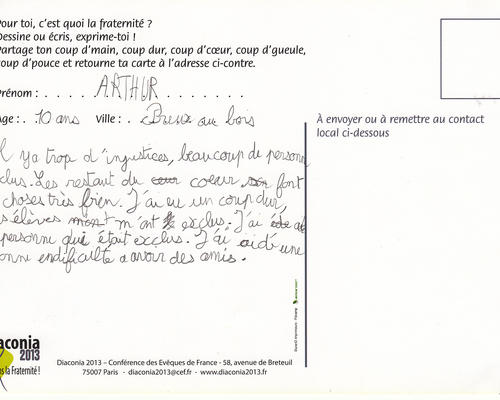 Pour toi, c'est quoi la fraternité ?
Dessine ou écris, exprime-toi !
Partage ton coup d'main, coup dur, coup d'cœur, coup d'gueule,
coup d'pouce et retourne ta carte à l'adresse ci-contre.
Prénom : . . . . ARTHUR . . . . . . .
Age : . 10 ans Ville : . Breux au bois
À envoyer ou à remettre au contact
local ci-dessous
l ya trop d'injustices, beaucoup de personn
clus. Les restaut du coeur font
choses très fren. J'ai eu un coup dur,
s élèves m'ont exclus. J'ai
personne qui était exclus. J'ai aidé une
onne endificulté a avoir des amis.
Diaconia
2013
ns la Fraternité !
Diaconia 2013 – Conférence des Evêques de France - 58, avenue de Breteuil
75007 Paris - diaconia2013@cef.fr - www.diaconia2013.fr